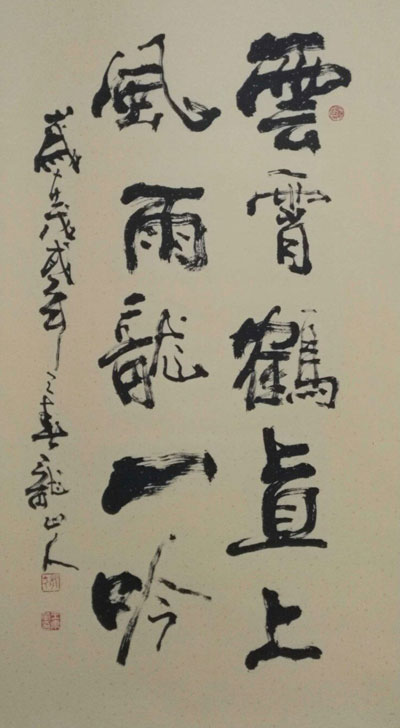 雲霄鶴直上
風雨龍一吟
歲在戊戌年之春龍山人